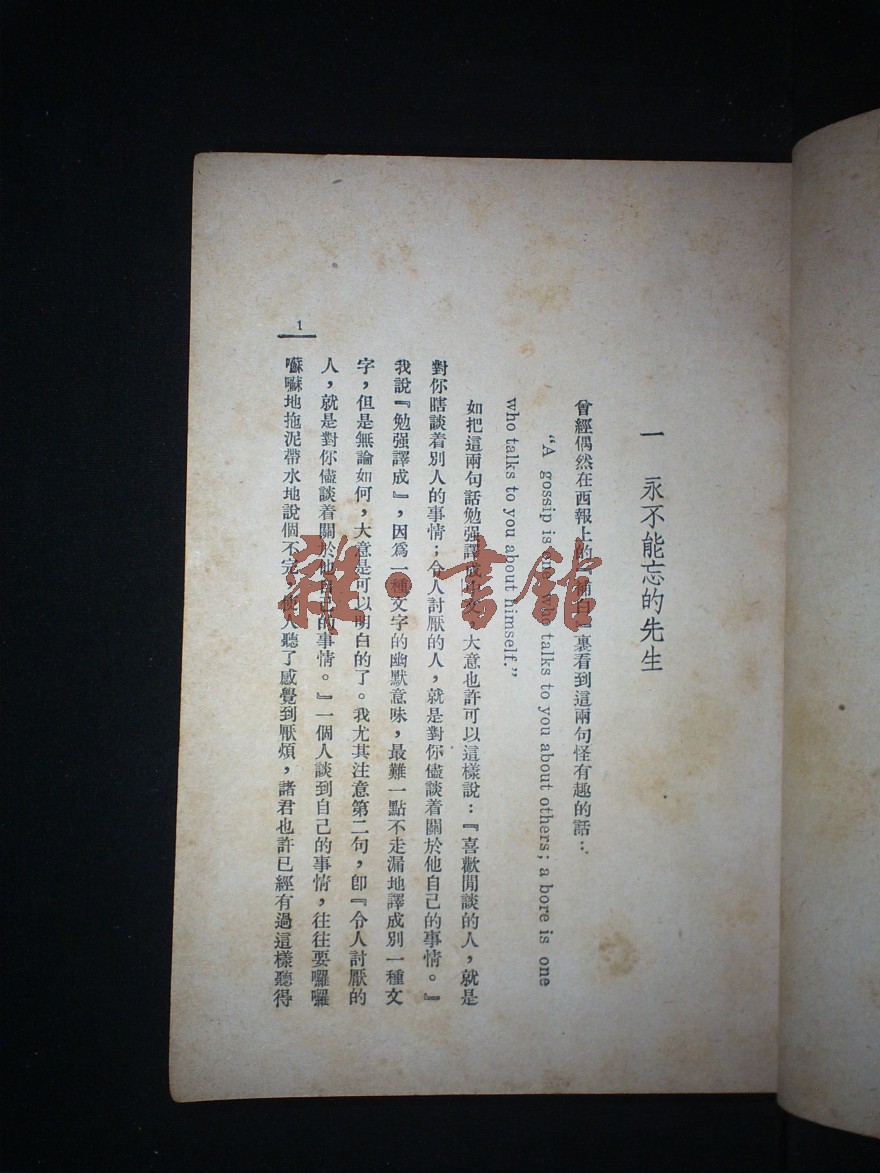 一 永不能忘的先生
曾經偶然在西報上的『補白』裏看到這兩句怪有趣的話：
“A gossip is one who talks to you about others; a bore is one
who talks to you about himself.”
如把這兩句話勉强譯成中文，大意也許可以這樣說：『喜歡閒談的人，就是
對你瞎談着別人的事情；令人討厭的人，就是對你儘談着關於他自己的事情。』
我說『勉强譯成』，因爲一種文字的幽默意味，最難一點不走漏地譯成別一種文
字，但是無論如何，大意是可以明白的了。我尤其注意第二句，卽『令人討厭的
人，就是對你儘談着關於他自己的事情。』一個人談到自己的事情，往往要囉囉
囌囌地拖泥帶水地說個不完，使人聽了感覺到厭煩，諸君也許已經有過這樣聽得
1
雜·書館